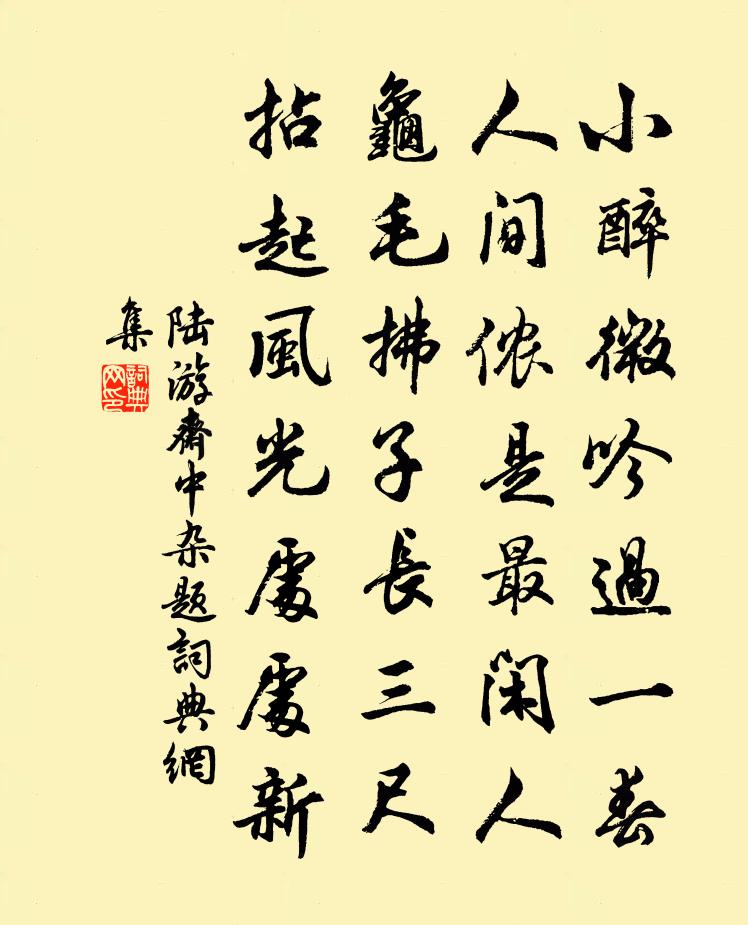 小醉微吟過一春
人间侬是最闲人
龜毛拂子長三尺
拈起風光處處新
陆游斋中杂题詞典網
集
詞典
网印